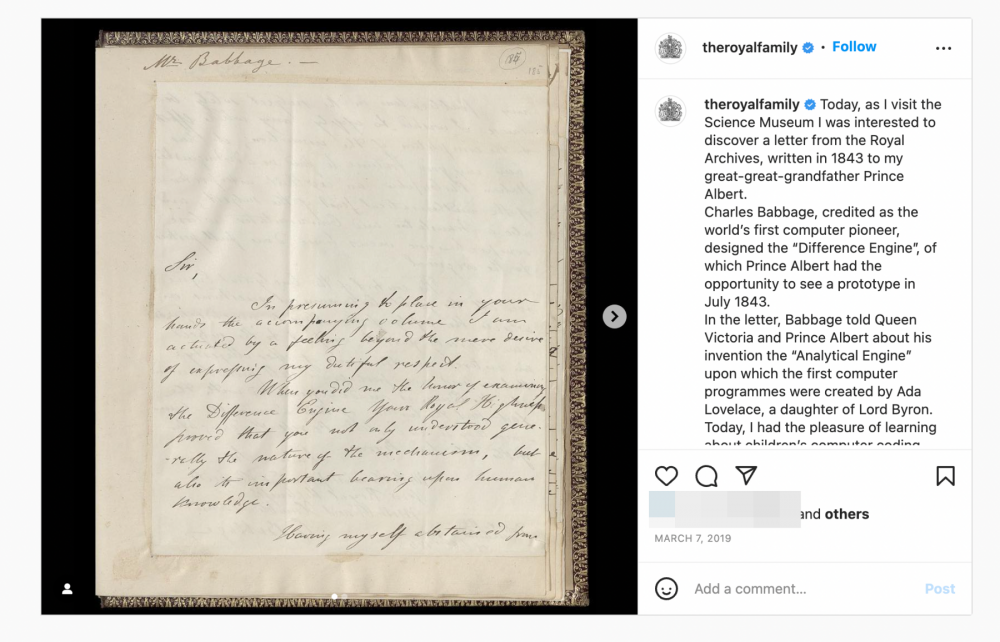 Mr Babbage. —
185
185
Sir,
In presuming to place in your
hands the accompanying volume I am
actuated by a feeling beyond the mere desire
of expressing my dutiful respect.
When you did me the honor of examining
the Difference Engine Your Royal Highness
proved that you not only understood gene-
-rally the nature of the mechanism, but
also its important bearing upon human
knowledge.
Having myself abstained from
theroyalfamily • Follow
theroyalfamily Today, as I visit the
Science Museum I was interested to
discover a letter from the Royal
Archives, written in 1843 to my
great-great-grandfather Prince
Albert.
Charles Babbage, credited as the
world’s first computer pioneer,
designed the “Difference Engine”, of
which Prince Albert had the
opportunity to see a prototype in
July 1843.
In the letter, Babbage told Queen
Victoria and Prince Albert about his
invention the “Analytical Engine”
upon which the first computer
programmes were created by Ada
Lovelace, a daughter of Lord Byron.
Today, I had the pleasure of learning
about children’s computer coding
and others
MARCH 7, 2019
Add a comment...
Post